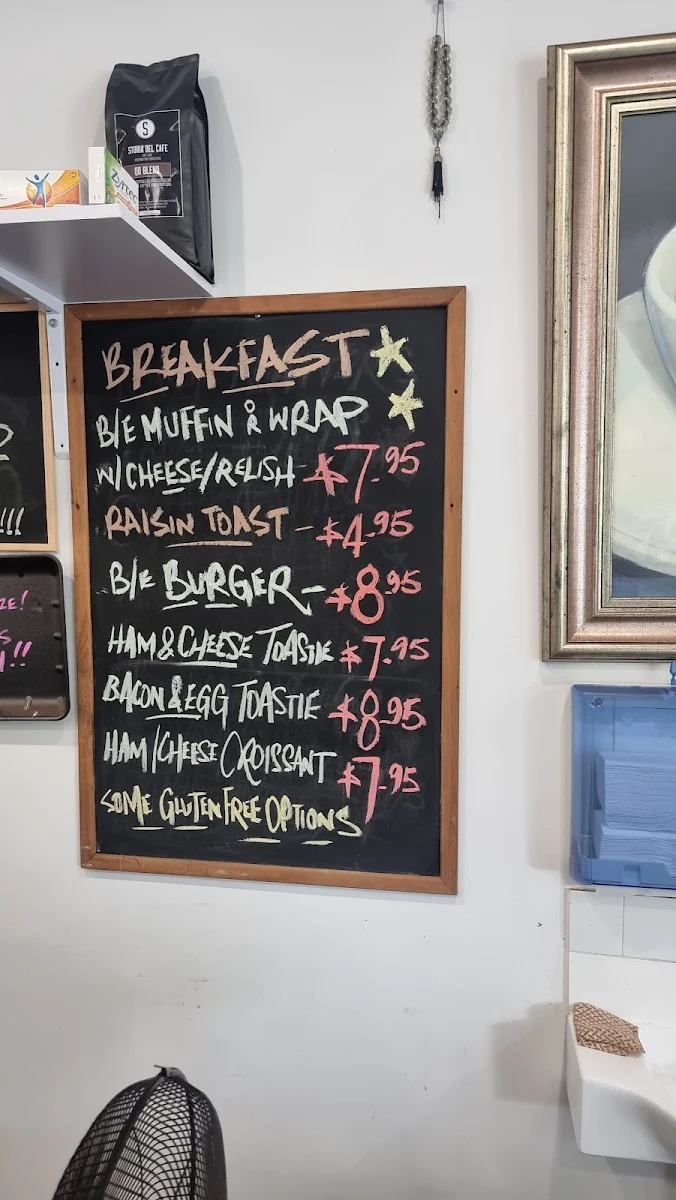 S
STORIA DEL CAFE
QB BLEND
Zyrtec
BREAKFAST
B/E MUFFIN OR WRAP
W/CHEESE/RELISH - $7.95
RAISIN TOAST - $4.95
B/E BURGER - $8.95
HAM & CHEESE TOASTIE $7.95
BACON & EGG TOASTIE $8.95
HAM/CHEESE CROISSANT $7.95
SOME GLUTEN FREE OPTIONS
!!!
!!